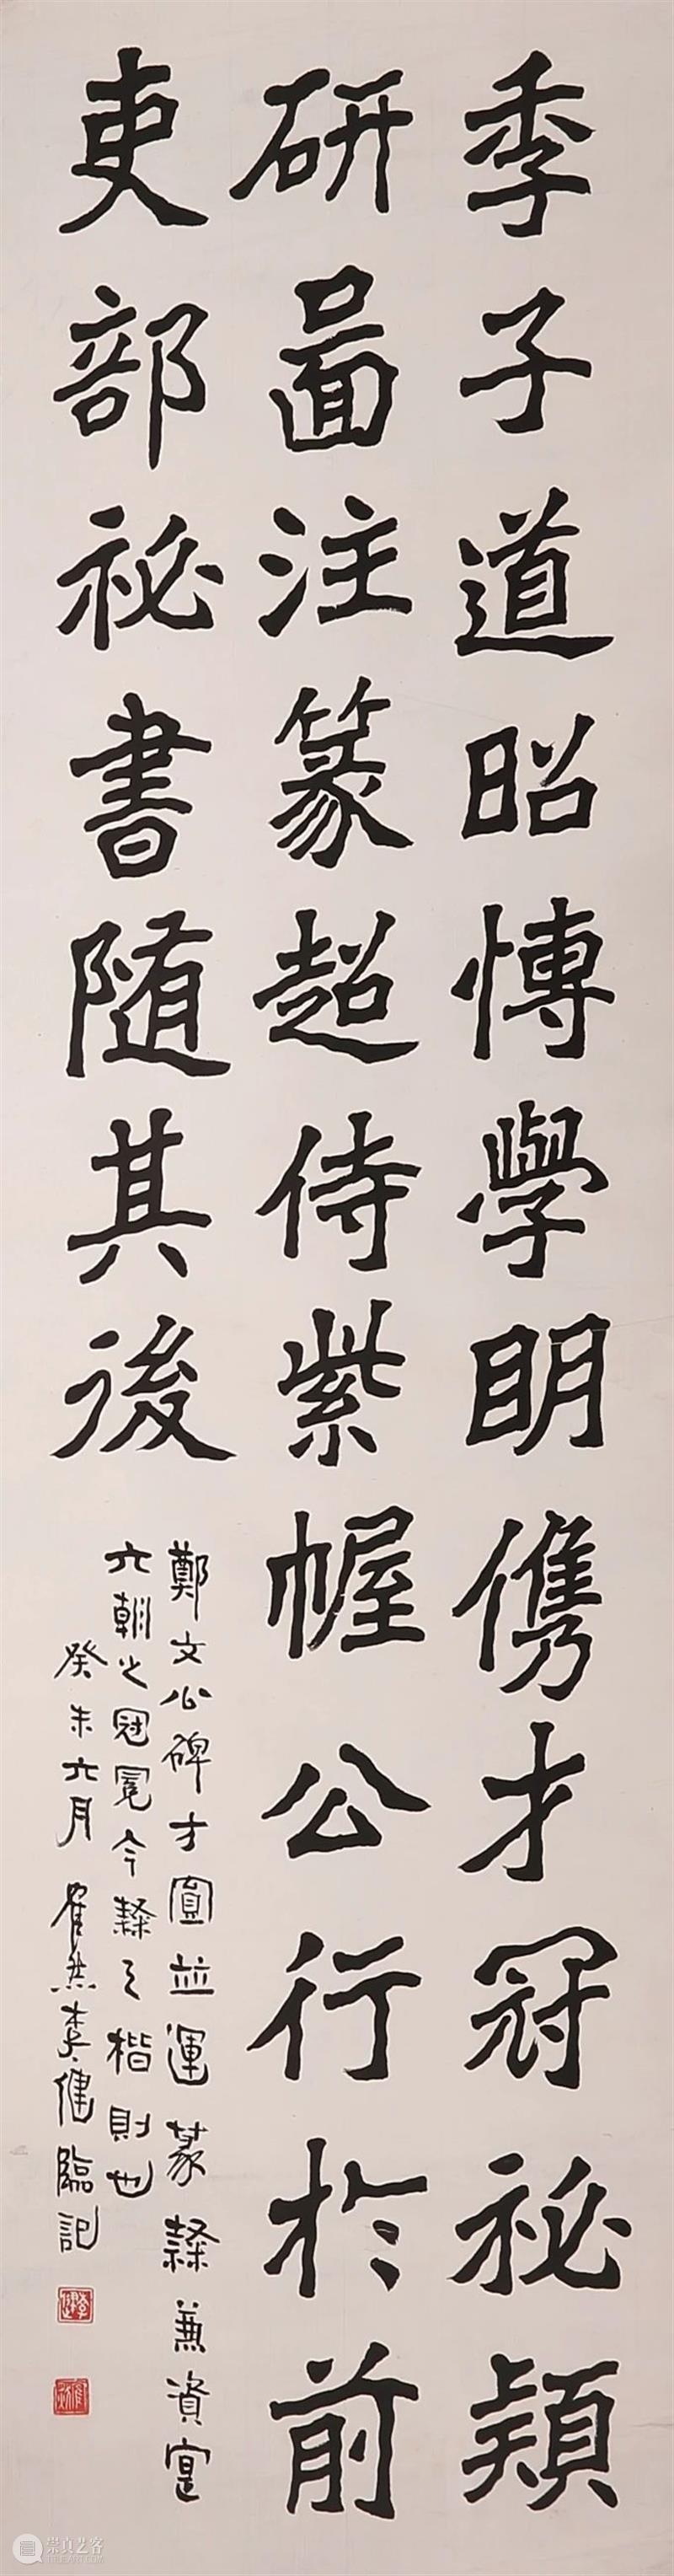 季子道昭博學明儁才冠祕穎
研圖注篆超侍紫幄公行於前
吏部祕書随其後
鄭文公碑方圓並運篆隸兼資寔
六朝之冠冕今隸之楷則也
癸未六月 崔然李健臨記
崇真艺客